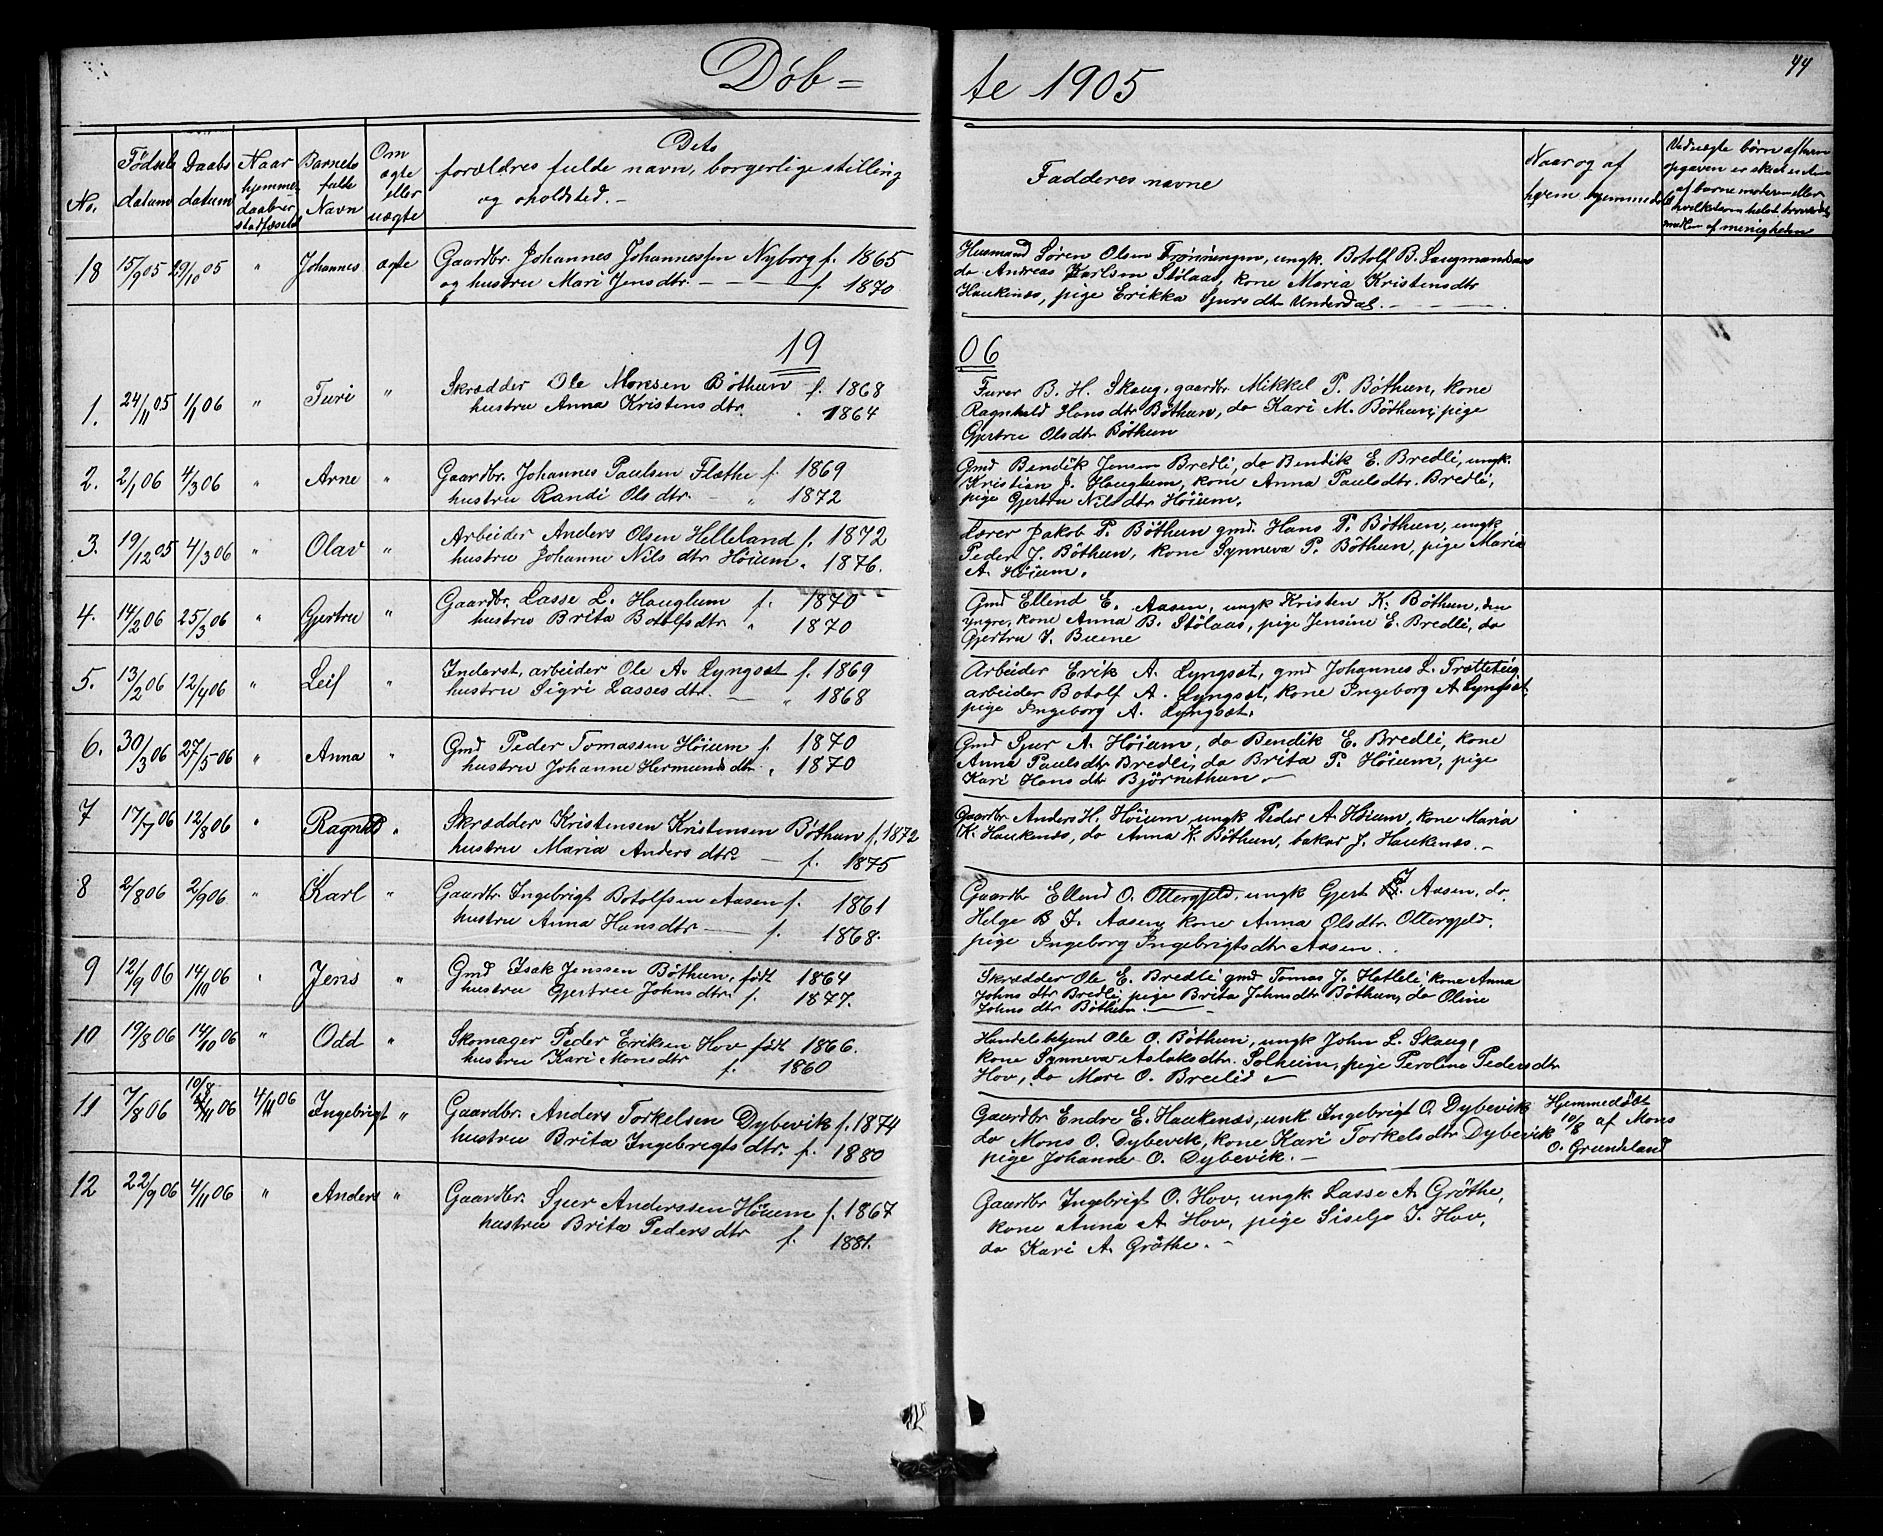 Döb= te 1905
44
No.
Fødsels datum
Daabs datum
Naar hjemme daaben stadfæstet
Barnets fulde Navn
Om ægte eller uægte
Dets forældres fulde navn, borgerlige stilling og opholdsted.-
Fadderes navne
Naar og af hvem hjemmedøbt
Ved uægte børn af hvem
opgaven er skeet
af barnemoderen eller
af menigheden
18 15/9 05 29/10 05 " Johannes ægte Gaardbr. Johannes Johannessen Nyborg f. 1865
og hustru Mari Jensdtr. - f. 1870
Husmand Søren Olsen Frönningen, ungk. Botolf B. Laugmandsaas
do Andreas Karlsen Stølaas, kone Maria Kristensdtr
Haukenæs, pige Erikka Sjursdtr Underdal. -
19 06
1. 24/11 05 1/1 06 " Turi " Skrædder Ole Monsen Böthun f. 1868
hustru Anna Kristensdtr. " 1864
Furer B. H. Skaug, gaardbr Mikkel P. Böthun, kone
Ragnhild Hansdtr Böthun, do Kari M. Böthun, pige
Gjertru Olsdtr Böthun
2. 2/1 06 4/3 06 " Arne " Gaardbr. Johannes Paulsen Flathe f. 1869
hustru Randi Olsdtr - " 1872
Gmd Bendik Jensen Bredli, do Bendik E. Bredli, ungk.
Kristian J. Hauglum, kone Anna Paulsdtr. Bredli,
pige Gjertru Nilsdtr Höium.
3. 19/12 05 4/3 06 " Olav " Arbeider Anders Olsen Helleland f. 1872
hustru Johanne Nilsdtr Höium " 1876.
Lærer Jakob P. Böthun gmd. Hans P. Böthun, ungk
Peder J. Böthun, kone Synneva P. Böthun, pige Maria
A. Höium.
4. 14/2 06 25/3 06 " Gjertru " Gaardbr. Lasse L. Hauglum f. 1870
hustru Brita Botolfsdtr " 1870
Gmd Ellend E. Aasen, ungk Kristen K. Böthun, den
yngre, kone Anna B. Stölaas, pige Jensine E. Bredli, do
Gjertru I. Buene
5. 13/2 06 12/4 06 " Leif " Inderst, arbeider Ole A. Lyngsæt f. 1869
hustru Sigri Lassesdtr. - " 1868
Arbeider Erik A. Lyngsæt, gmd Johannes L. Trætteteig
arbeider Botolf A. Lyngsæt, kone Ingeborg A Lyngsæt
pige Ingeborg A. Lyngsæt.
6. 30/3 06 27/5 06 " Anna " Gmd Peder Tomassen Höium f. 1870
hustru Johanne Hermundsdtr. " 1870
Gmd Sjur A. Höium, do Bendik E. Bredli, kone
Anna Paulsdtr Bredli, do Brita P. Höium, pige
Kari Hansdtr Björnethun -
7 17/7 06 12/8 06 " Ragnhild " Skrædder Kristensen Kristensen Böthun f. 1872
hustru Maria Andersdtr. - f. 1875
Gaardbr Anders H. Höium ungk Peder A Höium, kone Maria
K. Haukenæs, do Anna K. Böthun, bakar J. Haukenæs. -
8 2/8 06 2/9 06 " Karl " Gaardbr. Ingebrigt Botolfsen Aasen f. 1861
hustru Anna Hansdtr - f. 1868.
Gaardbr Ellend O. Ottergjeld, ungk Gjert J. Aasen, do.
Helge B I. Aasen, kone Anna Olsdtr. Ottergjeld.
pige Ingeborg Ingebrigtsdtr Aasen.
9 12/9 06 14/10 06 " Jens " Gmd Isak Jenssen Böthun, født 1864
hustru Gjertru Johnsdtr. f. 1877.
Skrædder Ole E. Bredli gmd Tomas J. Hatleli, kone Anna
Johnsdtr Bredli, pige Brita Johnsdtr Böthun, do Oline
Johnsdtr Böthun. -
10 19/8 06 14/10 06 " Odd " Skomager Peder Eriksen Hov født 1866.
hustru Kari Monsdtr f. 1860
Handelsbetjent Ole O. Böthun, ungk John L. Skaug,
kone Synneva Aslaksdtr. Solheim, pige Perolina Pedersdtr
Hov, do Mari O. Breilid -
11 7/8 06 10/8 4/11 06 4/11 06 Ingebrigt " Gaardbr. Anders Torkelsen Dybevik f. 1874
hustru Brita Ingebrigtsdtr. f. 1880
Gaardbr Endre E. Haukenæs, unk Ingebrigt O. Dybevik
do Mons O. Dybevik, kone Kari Torkelsdtr Dybevik
pige Johanne O. Dybevik. -
Hjemmedöbt
10/8 af Mons
O. Grundeland
12 22/9 06 4/11 06 " Anders " Gaardbr. Sjur Anderssen Höium f. 1867
hustru Brita Pedersdtr f. 1881.
Gaardbr Ingebrigt O. Hov, ungk. Lasse A. Gröthe,
kone Anna A Hov, pige Siselje I. Hov,
do Kari A. Gröthe. -